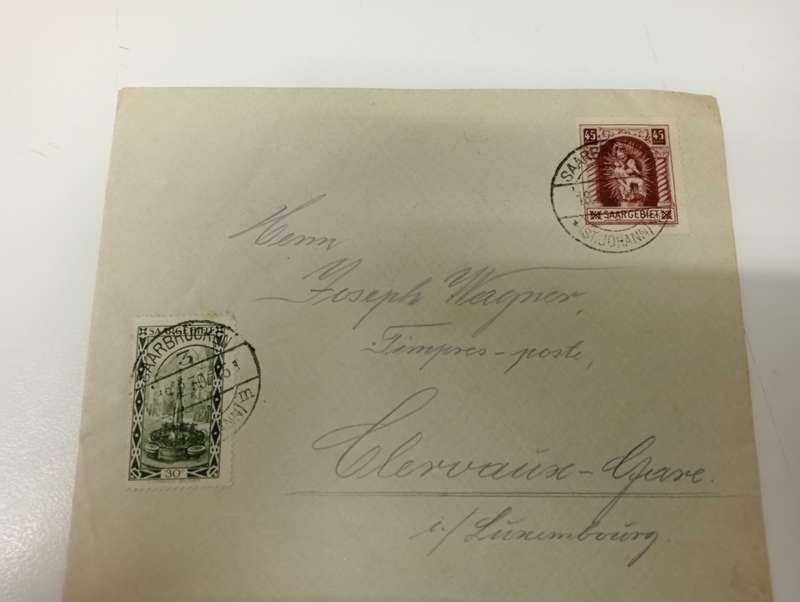 45 45
SAARGEBIET
ST. JOHANN
Herrn
Joseph Wagner,
Timpres-poste,
Clervaux-Gare.
i./Luxembourg.
SAARGEBIET
SAARBRÜCKEN
3
30